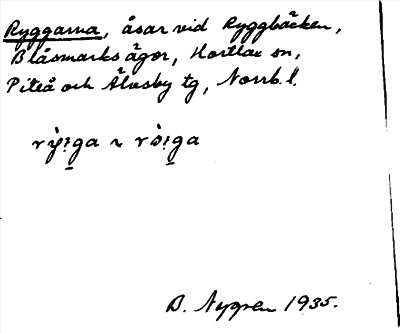 Ryggarna, åsar vid Ryggbäcken,
Blåsmarks ägor, Hortlax sn,
Piteå och Älvsby tg, Norrb. l.
B. Nygren 1935.